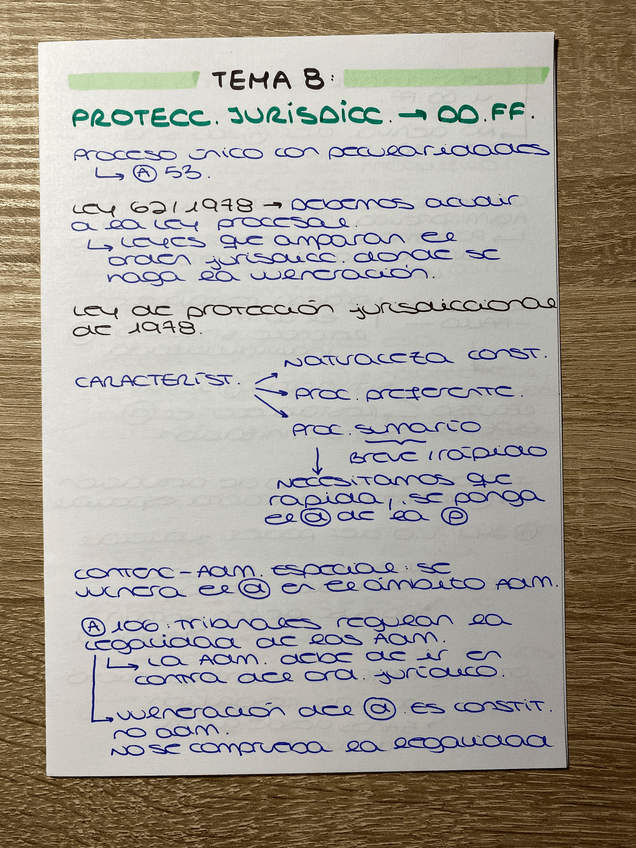 TEMA 8:
PROTECC. JURISDICC. → DD.FF.
PROCESO único con peculiaridades
↳ Ⓐ 53.
LEY 62/1978 → DEBEMOS acudir
a la LEY procesal.
↳ LEYES qe amparan el
orden jurisdicc. donde se
haga la vulneración.
LEY de protección jurisdiccional
de 1978.
NATURALEZA CONST.
CARACTERÍST.
PROC. preferente.
PROC. sumario
BREVE / rápido
NECESITAMOS qe
rápida/. se ponga
el ⓓ de la Ⓟ
CONTENC-ADM. ESPECIAL: se
vulnera el ⓓ en el ámbito ADM.
Ⓐ 106: Tribunales regulan la
legalidad de las ADM.
↳ LA ADM. debe de ir en
contra del ord. jurídico.
↳ vulneración del ⓓ. ES CONSTIT.
no adm.
NO SE comprueba la legalidad